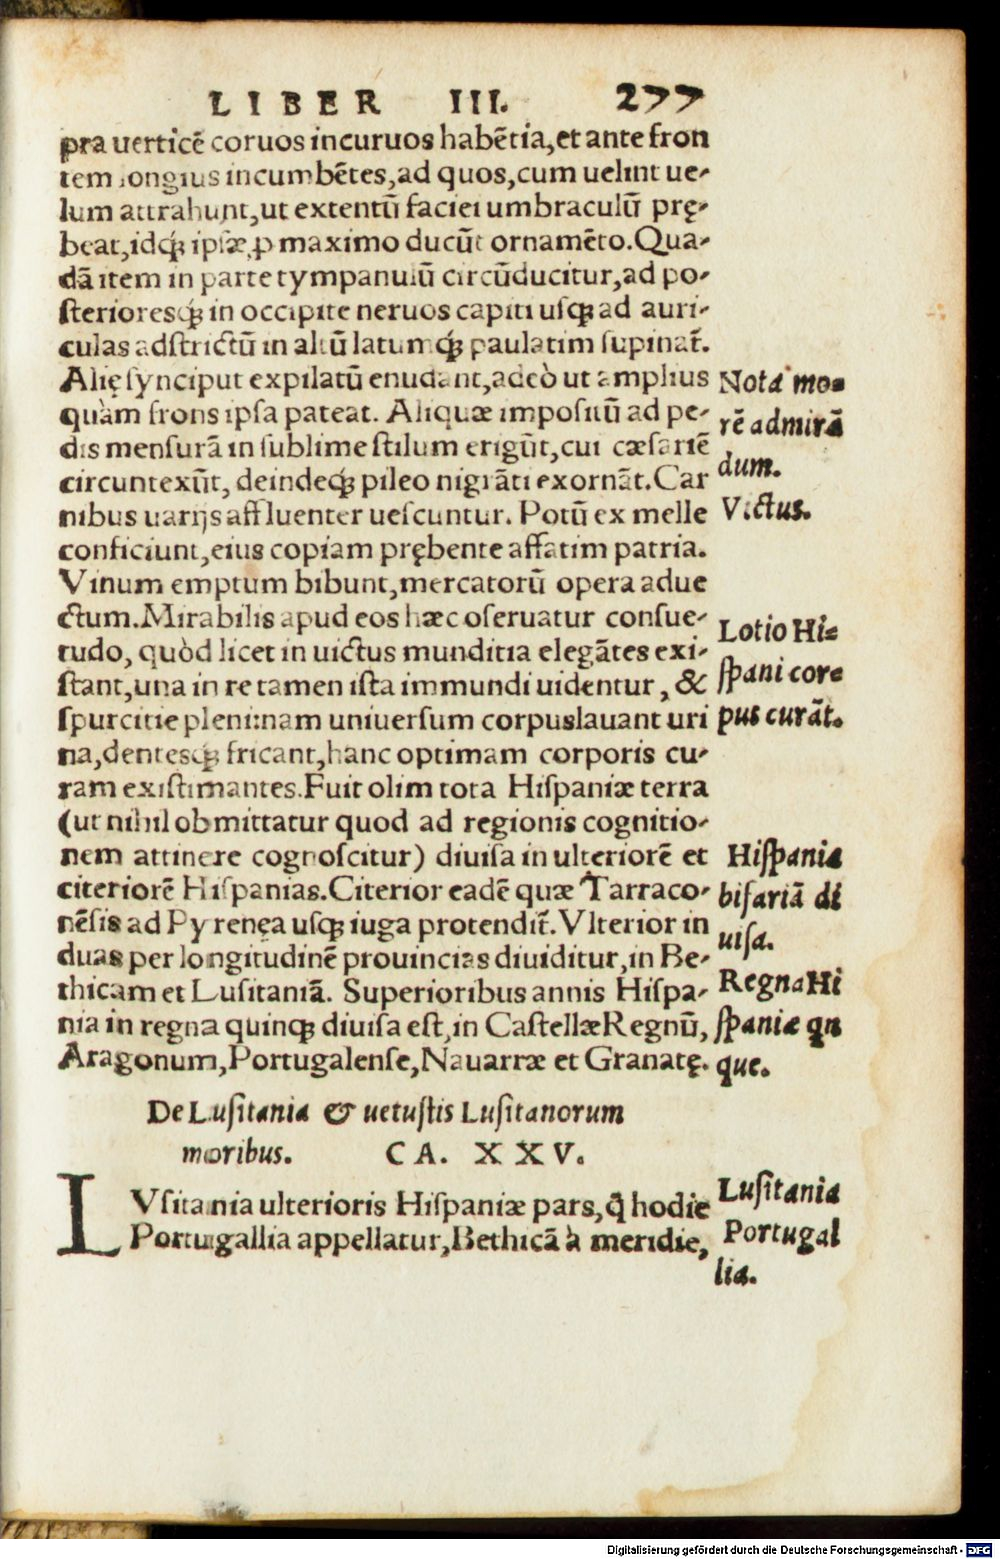 LIBER III. 277
pra uerticē coruos incuruos habētia, et ante fron
tem longius incumbētes, ad quos, cum uelint ue-
lum attrahunt, ut extentū faciei umbraculū prę-
beat, idq́; ipsæ ꝓ maximo ducūt ornamēto. Qua-
dā item in parte tympanulū circūducitur, ad po-
ſterioresq́; in occipite neruos capiti uſq; ad auri-
culas adſtrictū in altū latumq́; paulatim ſupinat̄.
Alię ſynciput expilatū enudant, adeò ut amplius
quàm frons ipſa pateat. Aliquæ impoſitū ad pe-
dis menſurā in ſublime ſtilum erigūt, cui cæſariē
circuntexūt, deindeq́; pileo nigrāti exornāt. Car
nibus uarijs affluenter ueſcuntur. Potū ex melle
conficiunt, eius copiam prębente affatim patria.
Vinum emptum bibunt, mercatorū opera adue
ctum. Mirabilis apud eos hæc oſeruatur conſue-
tudo, quòd licet in uictus munditia elegātes exi-
ſtant, una in re tamen iſta immundi uidentur, &
ſpurcitie pleni: nam uniuerſum corpus lauant uri
na, dentesq́; fricant, hanc optimam corporis cu-
ram exiſtimantes. Fuit olim tota Hiſpaniæ terra
(ut nihil obmittatur quod ad regionis cognitio-
nem attinere cognoſcitur) diuiſa in ulteriorē et
citeriorē Hiſpanias. Citerior eadē quæ Tarraco-
nēſis ad Pyrenęa uſq; iuga protendit̄. Vlterior in
duas per longitudinē prouincias diuiditur, in Be-
thicam et Luſitaniā. Superioribus annis Hiſpa-
nia in regna quinq; diuiſa eſt, in Caſtellæ Regnū,
Aragonum, Portugalenſe, Nauarræ et Granatę.
De Luſitania & uetuſtis Luſitanorum
moribus. CA. XXV.
LVſitania ulterioris Hiſpaniæ pars, q̄ hodie
Portugallia appellatur, Bethicā à meridie,
Nota mo-
rē admirā
dum.
Victus.
Lotio Hi-
ſpani cor-
pus curāt.
Hiſpania
bifariā di
uiſa.
Regna Hi
ſpaniæ qn
que.
Luſitania
Portugal
lia.
Digitalisierung gefördert durch die Deutsche Forschungsgemeinschaft - DFG